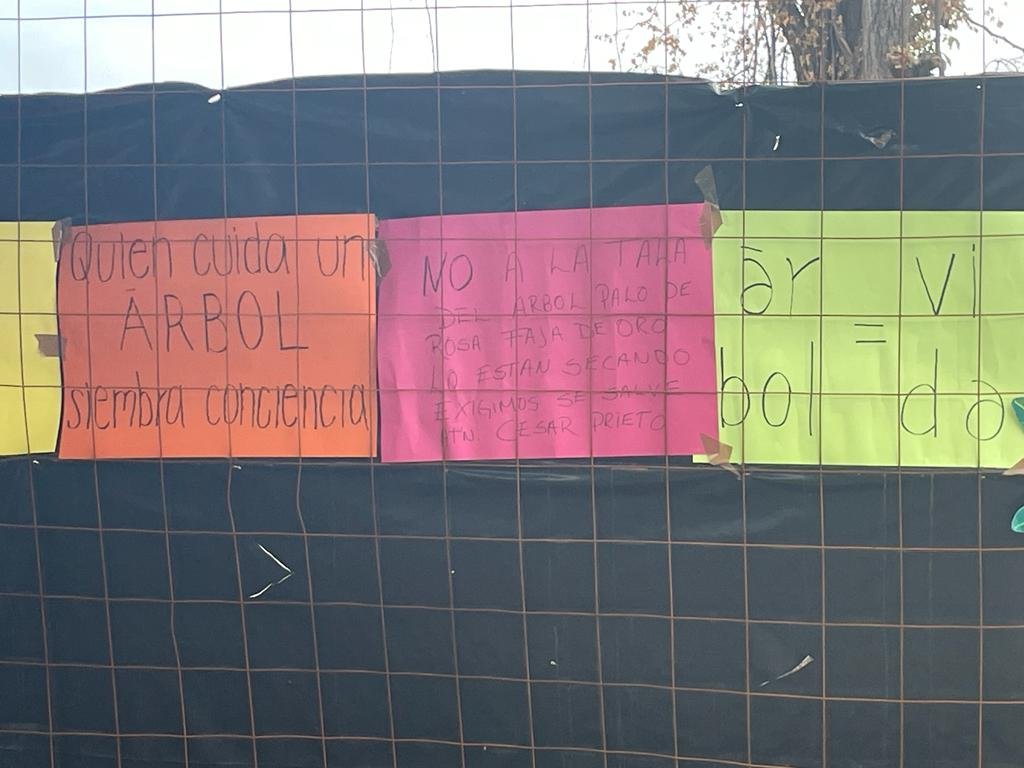 Quien cuida un
ÁRBOL
siembra conciencia
NO A LA TALA
DEL ARBOL PALO DE
ROSA FAJA DE ORO
LO ESTAN SECANDO
EXIGIMOS SE SALVE
ATN. CESAR PRIETO
ár
bol
=
vi
da